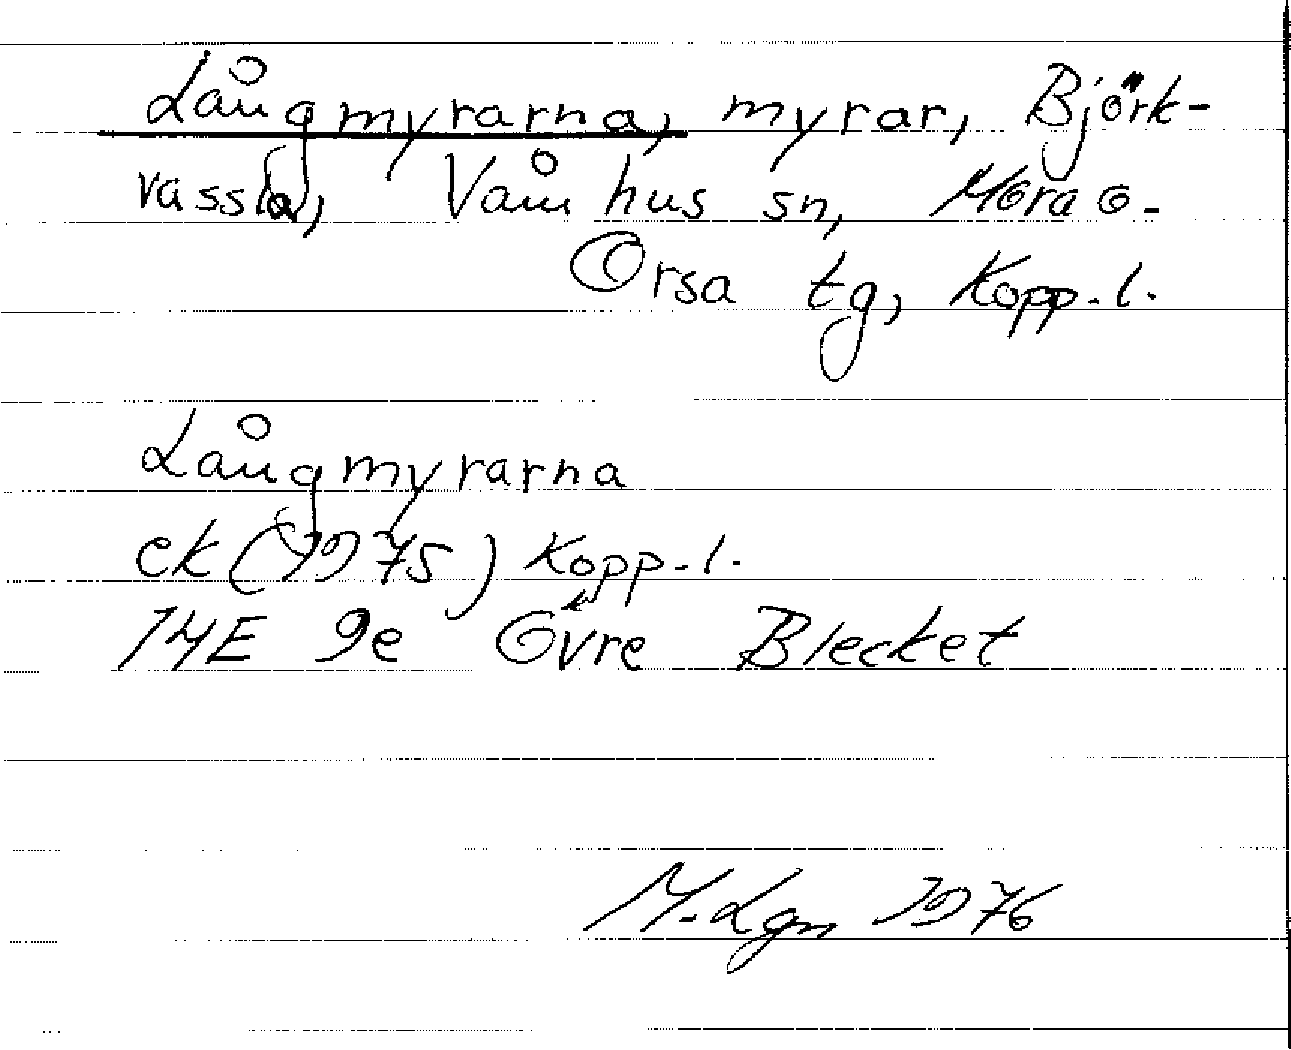 Långmyrarna, myrar, Björk-
vassla, Våmhus sn, Mora o.
Orsa tg, Kopp. l.
Långmyrarna
ek (1975) Kopp. l.
14E 9e Övre Blecket
M. Lgn 1976